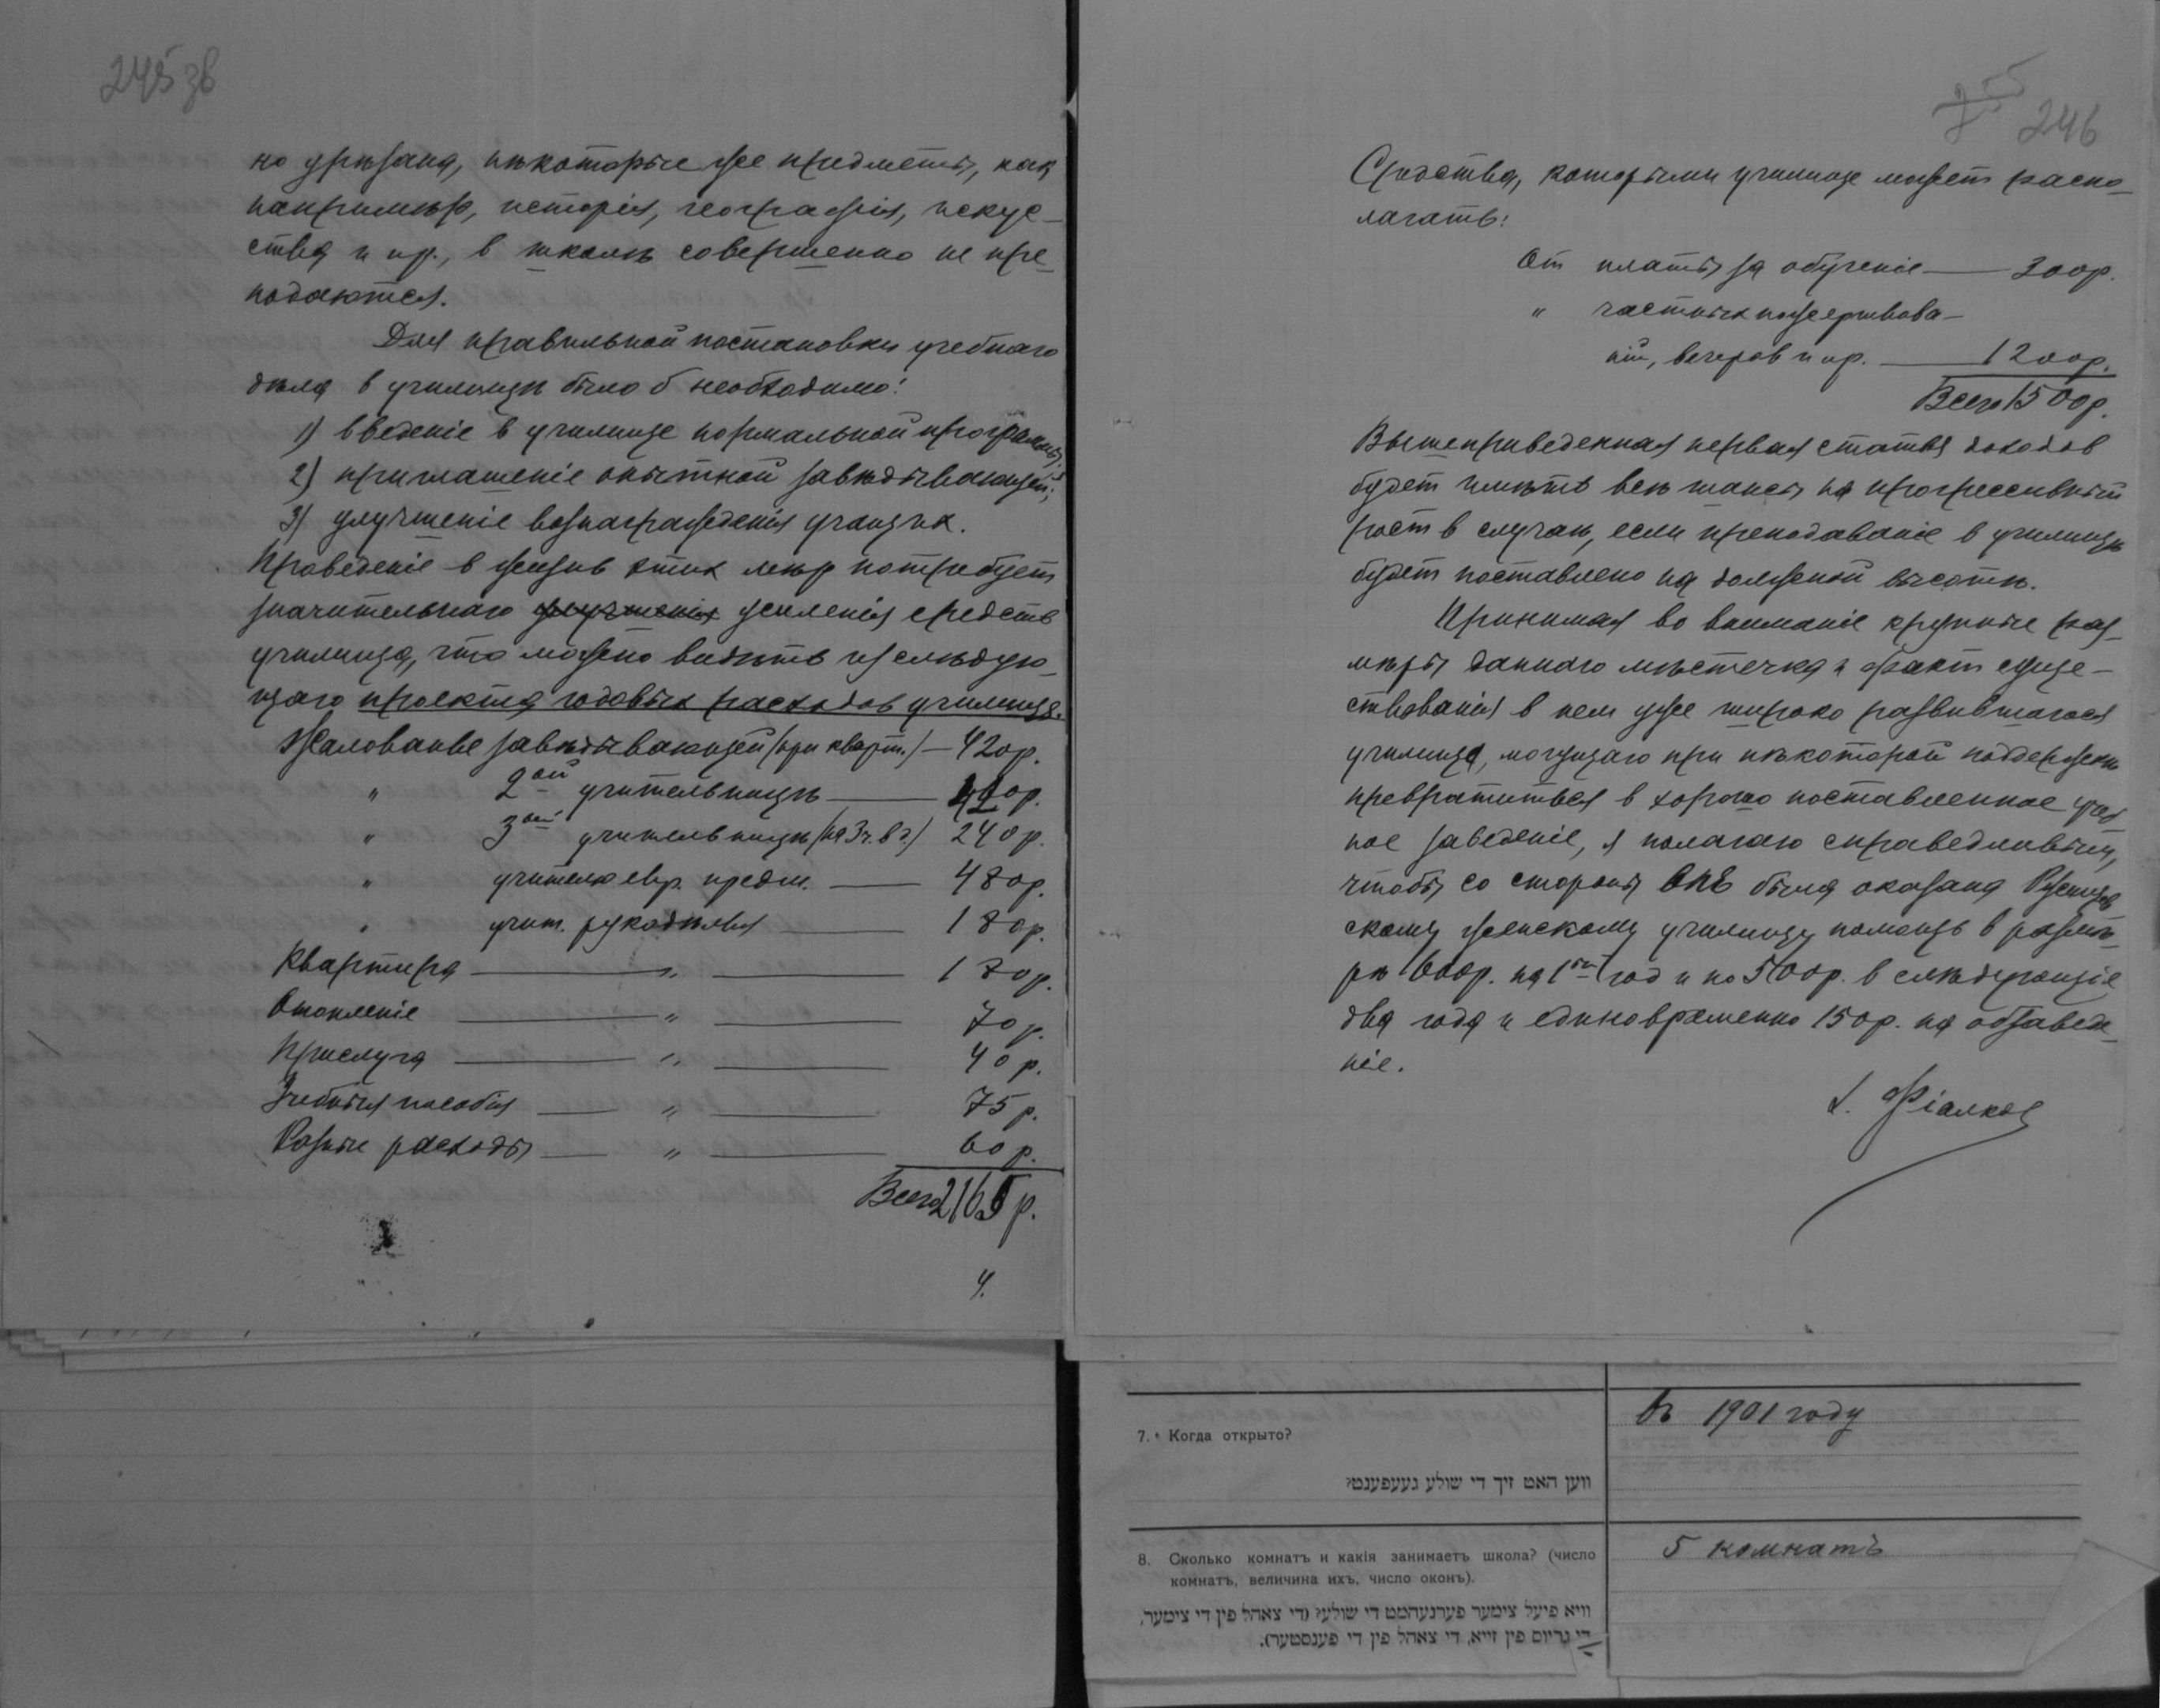 245 зв
но урѣзана, нѣкоторые же предметы, как
например, исторія, географія, искус-
ства и пр., в школѣ совершенно не пре-
подаются.
Для правильной постановки учебнаго
дѣла в училищѣ было б необходимо:
1) введеніе в училище нормальной программы;
2) приглашеніе опытной завѣдывающей;
3) улучшеніе вознагражденія учащих.
Проведеніе в жизнь этих мѣр потребует
значительнаго улучшенія усиленія средств
училища, что можно видѣть из слѣдую-
щаго проекта годовых расходов училища.
Жалованье завѣдывающей (при кварт.) — 420р.
" 2ой учительницѣ —
" 3ей учительницѣ (на 3 ч. в д.) 240р.
" учителю евр. предм. — 480р.
" учит. рукодѣлья — 180р.
Квартира — " — 180р.
Отопленіе — " — 70р.
Прислуга — " — 40р.
Учебныя пособія — " — 75р.
Разные расходы — " — 60р.
Всего 2165р.
4.
246
Средства, которыми училище может распо-
лагать:
От платы за обученіе — 300р.
" частных пожертвова-
ній, вечеров и пр. — 1200р.
Всего 1500р.
Вышеприведенная первая статья доходов
будет имѣть всѣ шансы на прогрессивный
рост в случаѣ, если преподаваніе в училищѣ
будет поставлено на должной высотѣ.
Принимая во вниманіе крупные раз-
мѣры даннаго мѣстечка и факт суще-
ствованія в нем уже широко развившагося
училища, могущаго при нѣкоторой поддержкѣ
превратиться в хорошо поставленное учеб
ное заведеніе, я полагаю справедливым,
чтобы со стороны ОПЕ была оказана
скому женскому училищу помощь в размѣ-
рѣ 600р. на 1ый год и по 500р. в слѣдующіе
два года и единовременно 150р. на обзаведе-
ніе.
Фіалков
7. Когда открыто?
ווען האט זיך די שולע געעפענט?
въ 1901 году
8. Сколько комнатъ и какія занимаетъ школа? (число
комнатъ, величина ихъ, число оконъ).
וויא פיעל צימער פערנעהמט די שולע? (די צאהל פין די צימער,
די גרויס פין זייא, די צאהל פין די פענסטער).
5 комнатъ